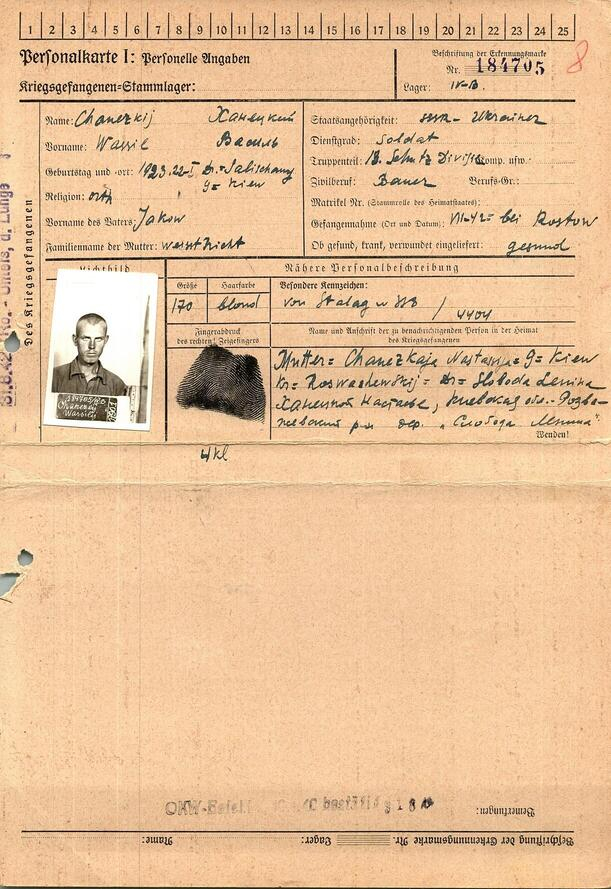 1 2 3 4 5 6 7 8 9 10 11 12 13 14 15 16 17 18 19 20 21 22 23 24 25
Personalkarte I: Personelle Angaben
Kriegsgefangenen-Stammlager:
Beschriftung der Erkennungsmarke
Nr. 184705
8
Lager: IV-B.
Des Kriegsgefangenen
Name: Chanezkij Ханецкий
Vorname: Wassil Василь
Geburtstag und -ort: 1923.22-I D=
g= Kiew
Religion: orth
Vorname des Vaters: Jakow
Familienname der Mutter:
Staatsangehörigkeit: Ukrainer
Dienstgrad: Soldat
Truppenteil: 18. Schutz Divis Komp. usw.:
Zivilberuf: Bauer Berufs-Gr.:
Matrikel Nr. (Stammrolle des Heimatstaates):
Gefangennahme (Ort und Datum): VII-42= bei Rostow
Ob gesund, krank, verwundet eingeliefert: gesund
Lichtbild
Nähere Personalbeschreibung
Größe Haarfarbe Besondere Kennzeichen:
170 blond von Stalag / 4404
Fingerabdruck
des rechten! Zeigefingers
Name und Anschrift der zu benachrichtigenden Person in der Heimat
des Kriegsgefangenen
Mutter= Chanezkaja Nastasija= g= Kiew
Kr= Roswashewskij= D= Sloboda Lenina
Ханецкой Настасье, Киевская обл.- Розва-
жевский р-н дер. „Слобода Ленина"
Wenden!
Chanezkij
Wassilij
OKW- bestätigt
Bemerkungen:
Beschriftung der Erkennungsmarke Nr. Lager: Name: